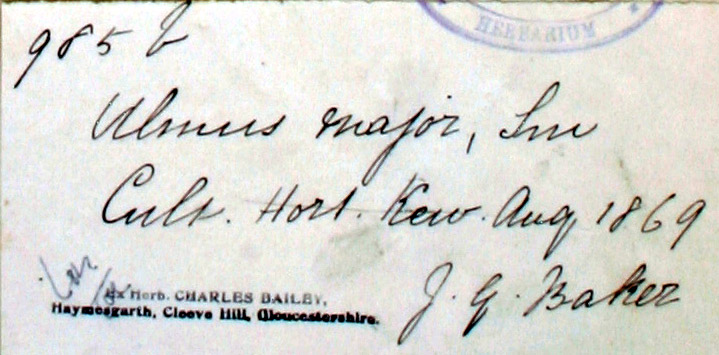 HERBARIUM
985 b
Ulmus major, Sm
Cult. Hort. Kew. Aug 1869
J. G. Baker
Ex Herb. CHARLES BAILEY,
Haymesgarth, Cleeve Hill, Gloucestershire.